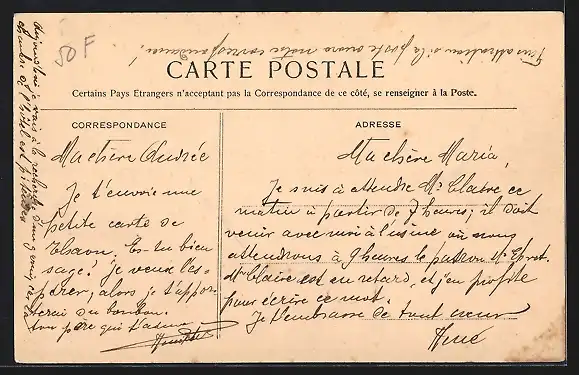 50 F
Fais attention si la poste ouvre notre correspondance!
CARTE POSTALE
Certains Pays Etrangers n'acceptant pas la Correspondance de ce côté, se renseigner à la Poste.
CORRESPONDANCE
Ma chère Andrée
Je t'envoie une
petite carte de
Thaon. Es-tu bien
sage? je veux l'es-
pérer, alors je t'appor-
terai du bonbon.
ton père qui t'aime
ADRESSE
Ma chère Maria,
Je suis à attendre Mr Claire ce
matin à partir de 7 heures; il doit
venir avec moi à l'usine où nous
attendrons à 9 heures le patron Mr
Mr Claire est en retard, et j'en profite
pour écrire ce mot.
Je t'embrasse de tout coeur
René
Aujourd'hui je vais à la recherche d'un car la
chambre de l'hôtel est